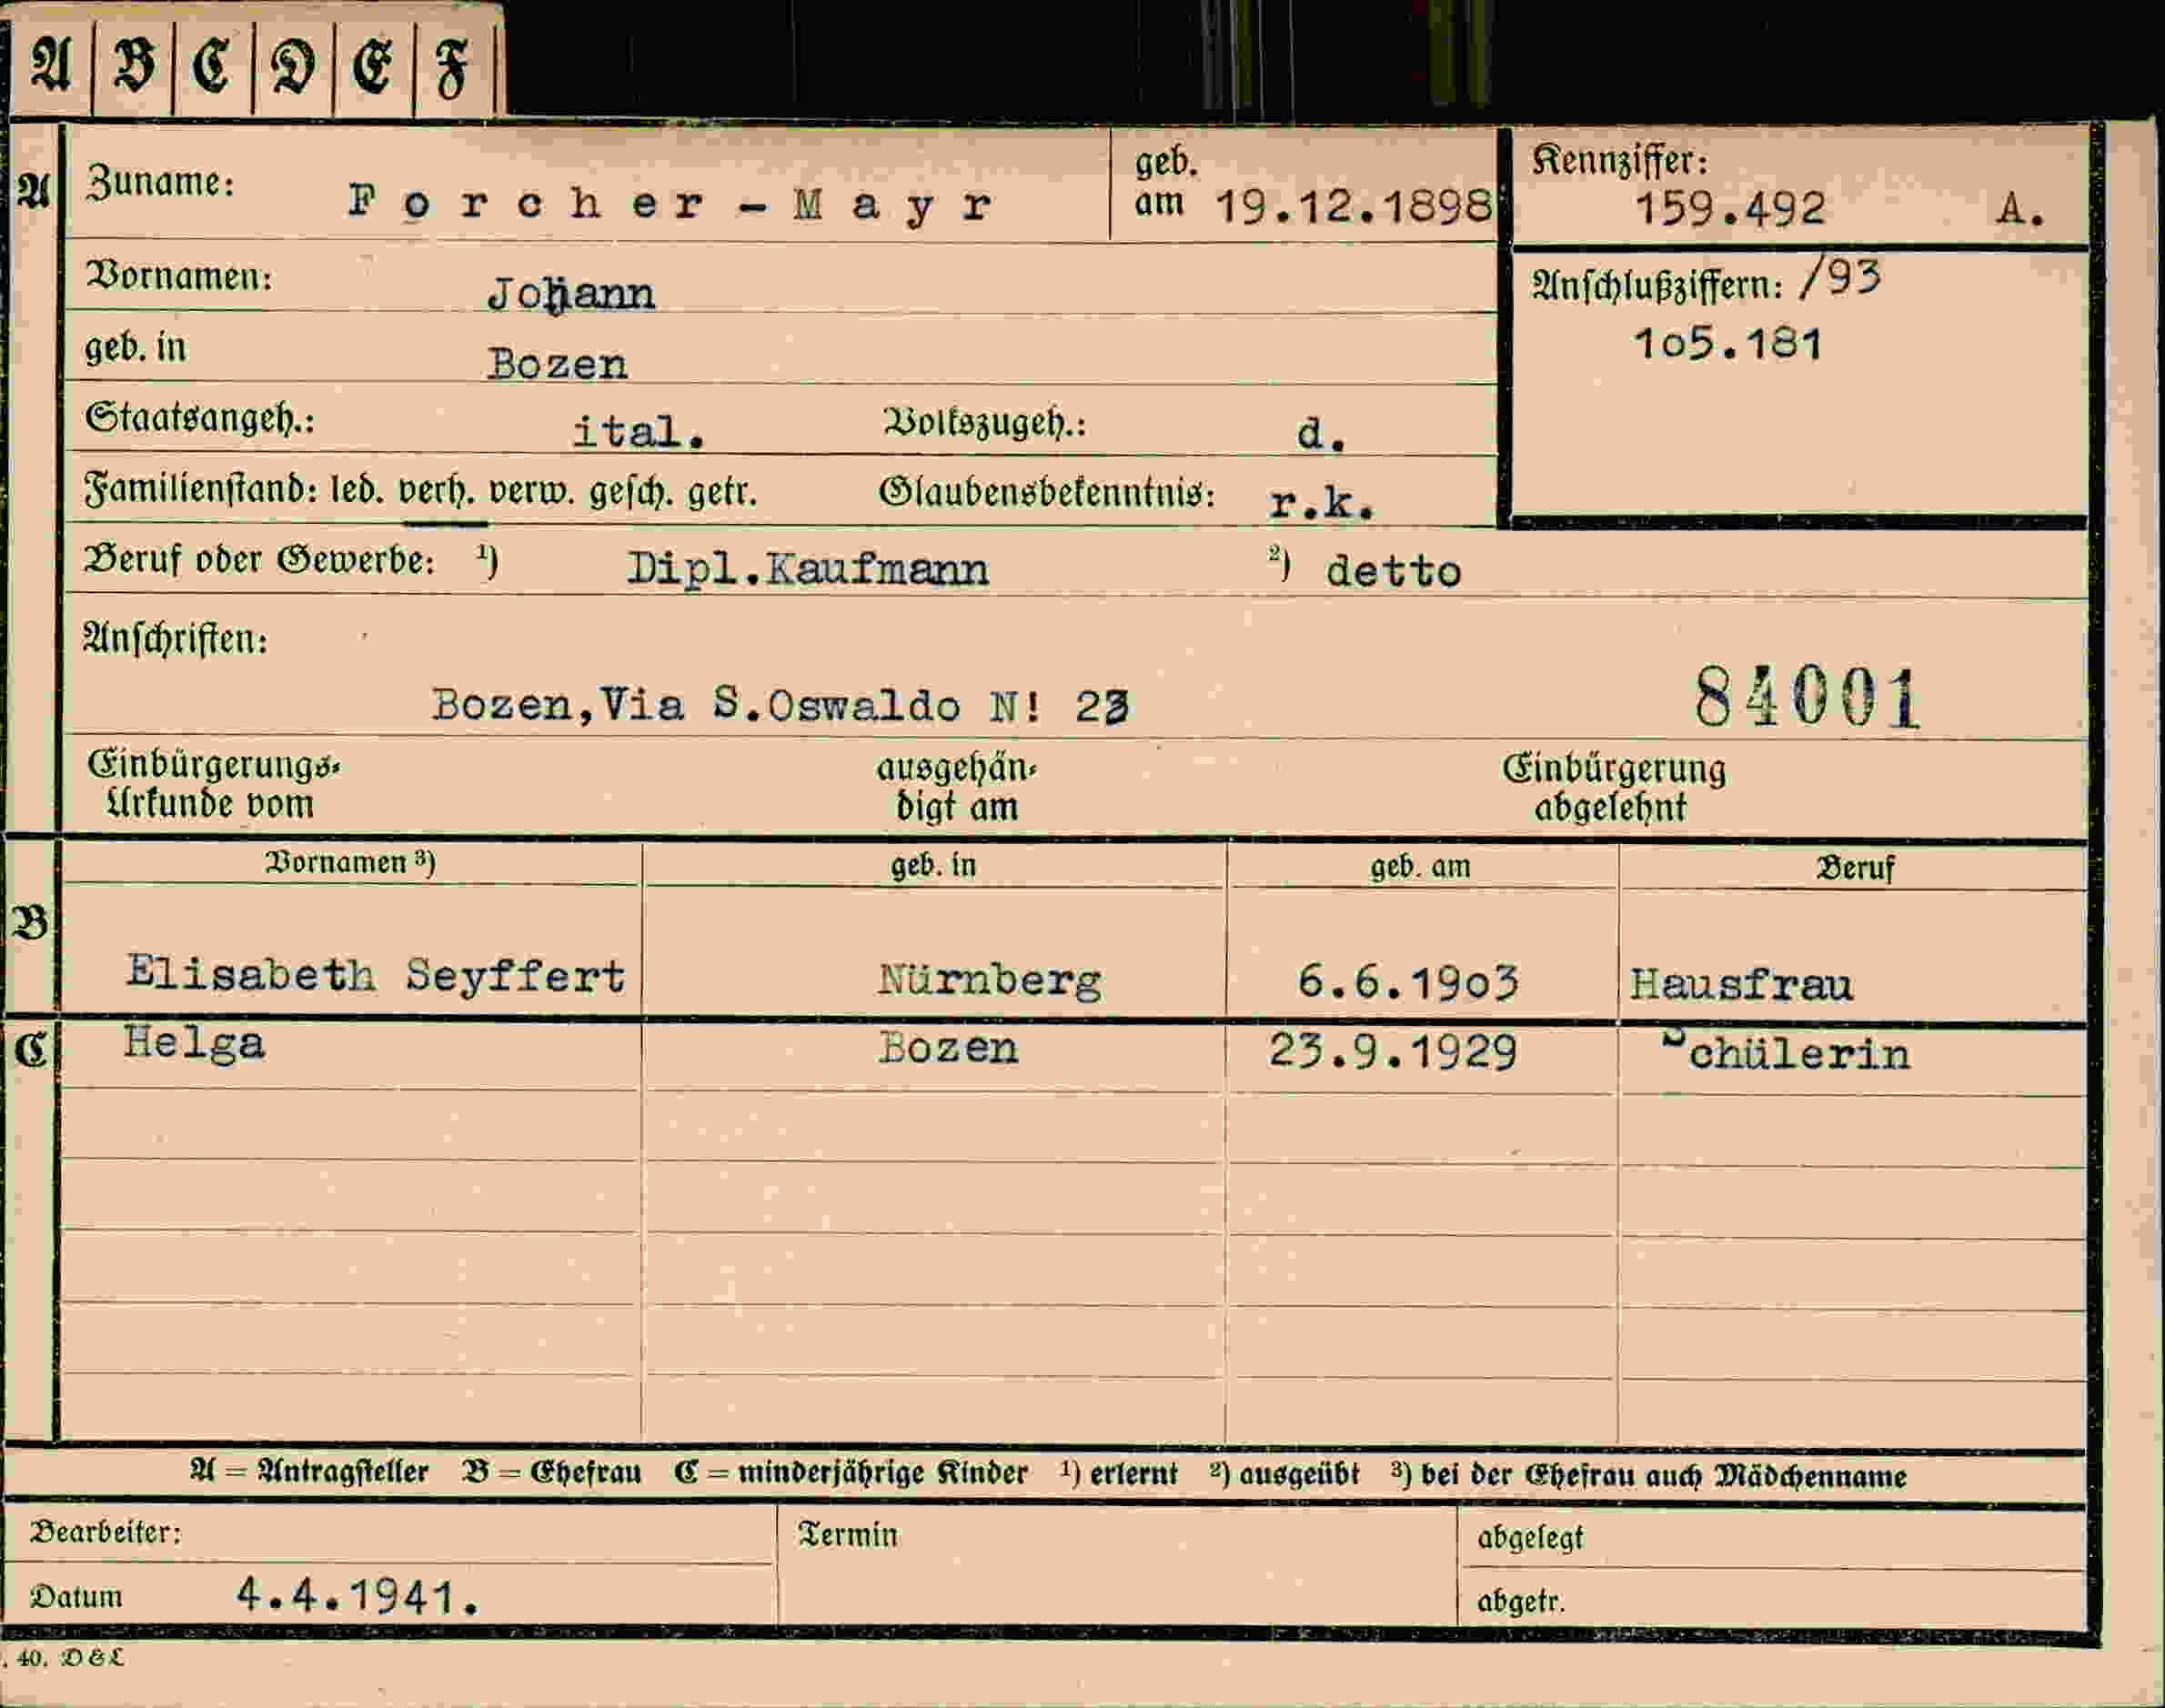 A B C D E F
A Zuname: Forcher-Mayr geb. am 19.12.1898 Kennziffer: 159.492 A.
Vornamen: Johann Anschlußziffern: /93
105.181
geb. in Bozen
Staatsangeh.: ital. Volkszugeh.: d.
Familienstand: led. verh. verw. gesch. getr. Glaubensbekenntnis: r.k.
Beruf oder Gewerbe: ¹) Dipl.Kaufmann ²) detto
Anschriften:
Bozen,Via S.Oswaldo N! 23 84001
Einbürgerungs- ausgehän- Einbürgerung
Urkunde vom digt am abgelehnt
Vornamen ³) geb. in geb. am Beruf
B
Elisabeth Seyffert Nürnberg 6.6.1903 Hausfrau
C Helga Bozen 23.9.1929 Schülerin
A = Antragsteller B = Ehefrau C = minderjährige Kinder ¹) erlernt ²) ausgeübt ³) bei der Ehefrau auch Mädchenname
Bearbeiter: Termin abgelegt
Datum 4.4.1941. abgetr.
. 40. D & L